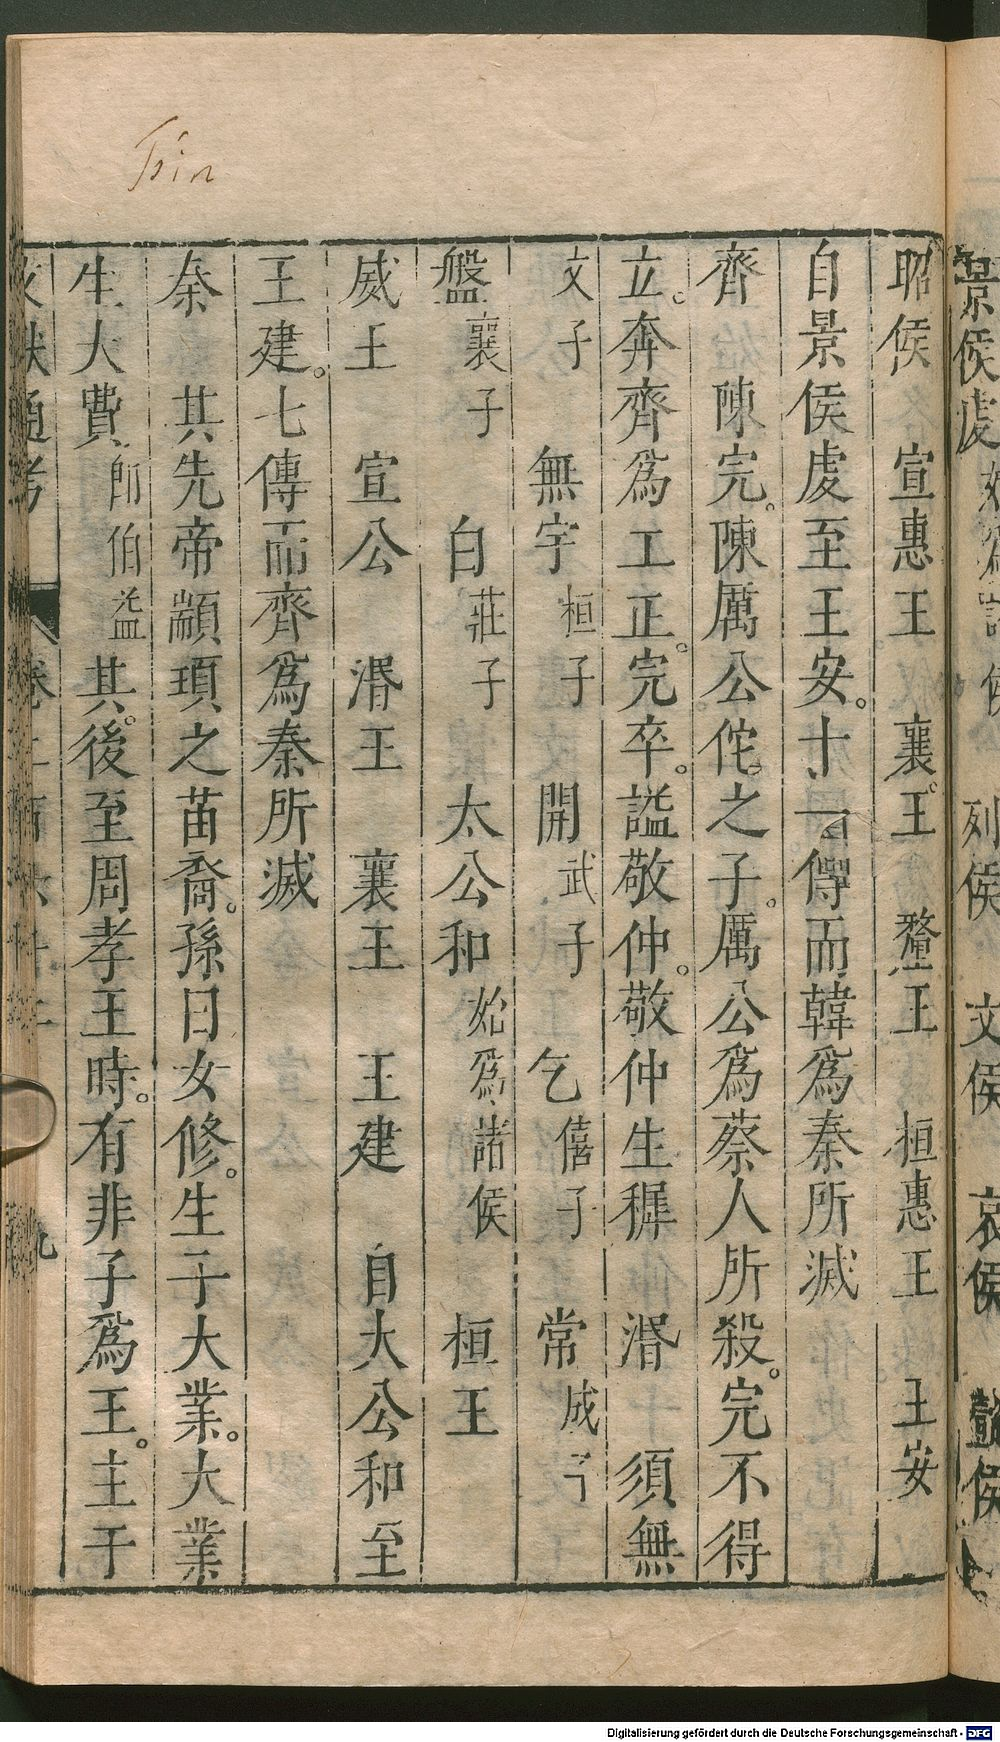 Tsin
景侯處
列侯 文侯 哀侯 懿侯
昭侯 宣惠王 襄王 釐王 桓惠王 王安
自景侯處至王安十一傳而韓為秦所滅
齊 陳完陳厲公佗之子厲公為蔡人所殺完不得
立奔齊為工正完卒謚敬仲敬仲生穉 湣 須無
文子 無宇桓子 開武子 乞僖子 常成子
盤襄子 白莊子 太公和始為諸侯 桓王
威王 宣公 湣王 襄王 王建 自太公和至
王建七傳而齊為秦所滅
秦 其先帝顓頊之苗裔孫曰女修生子大業大業
生大費即伯益其後至周孝王時有非子為王主于
Digitalisierung gefördert durch die Deutsche Forschungsgemeinschaft - DFG